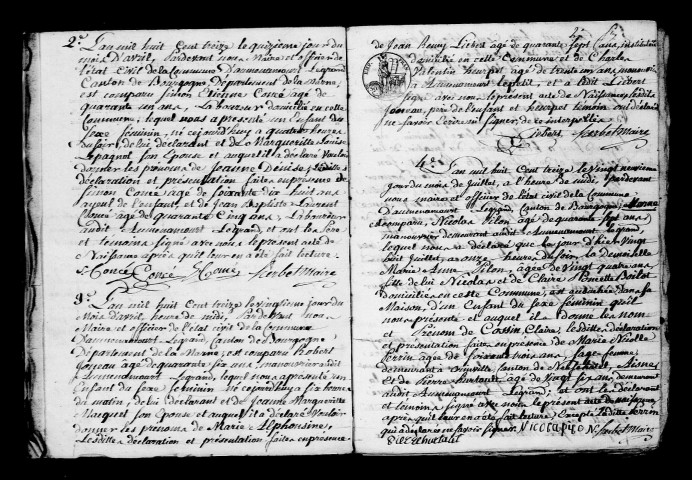 2.e L'an mil huit Cent treize le quizieme jour du
mois D'avril, Pardevant nous maire et officier de
l'état Civil de la Commune D'aumenancourt Legrand
Canton de Bourgogne Département de la Marne,
est comparu Simon Etienne Corcé agé de
quarante un ans, Laboureur domicilié en cette
Commune, lequel nous a présenté un Enfant du
Sexe féminin, né cejourd'huy a quatre heures
du soir, de lui déclarant et de Margueritte Louise
Lepagnol son Epouse et auquel il a déclaré Vouloir
donner les prénoms de Jeanne Denise, Lesdittes
déclaration et présentation faites en présence de
Simon Corcé agé de soixante dix huit ans
ayeul de l'enfant, et de Jean Baptiste Laurent
agé de quarante Cinq ans, Laboureur
audit Aumenancourt Legrand, et ont les Pere
et temoins signé avec nous le present acte de
Naissance après que lecture en a été fait lecture.
S. Concé Corcé Herbet Maire
3.e L'an mil huit Cent treize le vingtieme jour du
Mois d'avril, heure de midi, Pardevant nous
Maire et officier de l'état civil de la Commune
d'aumenancourt Legrand, Canton de Bourgogne
Département de la Marne, est comparu Robert
Joneau agé de quarante six ans, manouvrier audit
Aumenancourt Legrand, lequel nous a présenté un
Enfant du Sexe féminin né cejourd'huy six heures
du matin, de lui déclarant et de Jeanne Margueritte
Maquet son Epouse et auquel il a déclaré Vouloir
donner les prénoms de Marie Alphonsine,
Lesdittes déclaration et présentation faites en présence
de Jean Remy Liebert agé de quarante sept ans, instituteur
domicilié en cette Commune et de Charles
Valentin heurpet agé de trente un ans, manouvrier
a Aumenancourt Lepetit, et a ledit Liebert
signé avec nous le present acte de Naissance, ledit
Joneau, pere de l'enfant et heurpet temoin ont déclaré
ne savoir écrire ni signer, de ce interpellés.
Liebert Herbet Maire
4.e L'an mil huit Cent treize le Vingt neuvieme
jour du mois de Juillet, a l'heure de midi Pardevant
nous maire et officier de l'état civil de la Commune
d'aumenancourt Legrand, Canton de Bourgogne, Marne
a comparu, Nicolas Pilon agé de quarante sept ans,
manouvrier demeurant audit Aumenancourt le grand,
lequel nous a déclaré que le jour d'hier Vingt
huit Juillet, a onze heures du soir, la demoiselle
Marie Anne Pilon, agée de Vingt quatre ans
fille de lui Nicolas et de Claire Poncette Boilet
domiciliée en cette Commune, est accouchée dans sa
Maison, d'un Enfant du Sexe féminin qu'il
nous présente et auquel il donne les nom
et Prénom de Cossin, Claire, lesdittes déclaration
présentation faites en présence de Marie Nicolle
Perrin agée de soixante trois ans, sage femme
demeurant a canton de Neufchatel, Aisne
et de Pierre hurtault agé de Vingt six ans, demeurant
audit Aumenancourt Legrand, et ont le déclarant
et temoin signé avec nous le présent acte de naissance,
après que lecture en a été fait lecture, Excepté laditte Perrin
qui a déclaré ne savoir signer. Nicolas pilon Herbet Maire
Pierre hurtalt